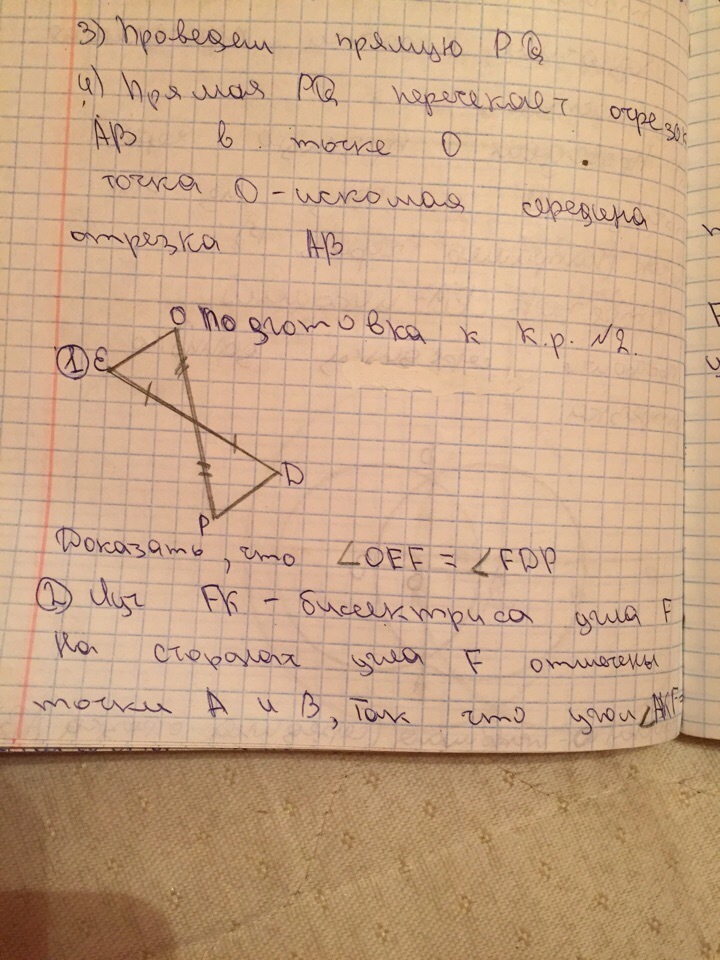 3) Проведем прямую PQ
4) Прямая PQ пересекает отрезок
AB в точке O
точка O - искомая середина
отрезка AB
Подготовка к к.р. №2.
1 E O D P
Доказать, что ∠OEF = ∠FDP
2 Луч FK - биссектриса угла F
На сторонах угла F отмечены
точки A и B, так что угол ∠AKF=